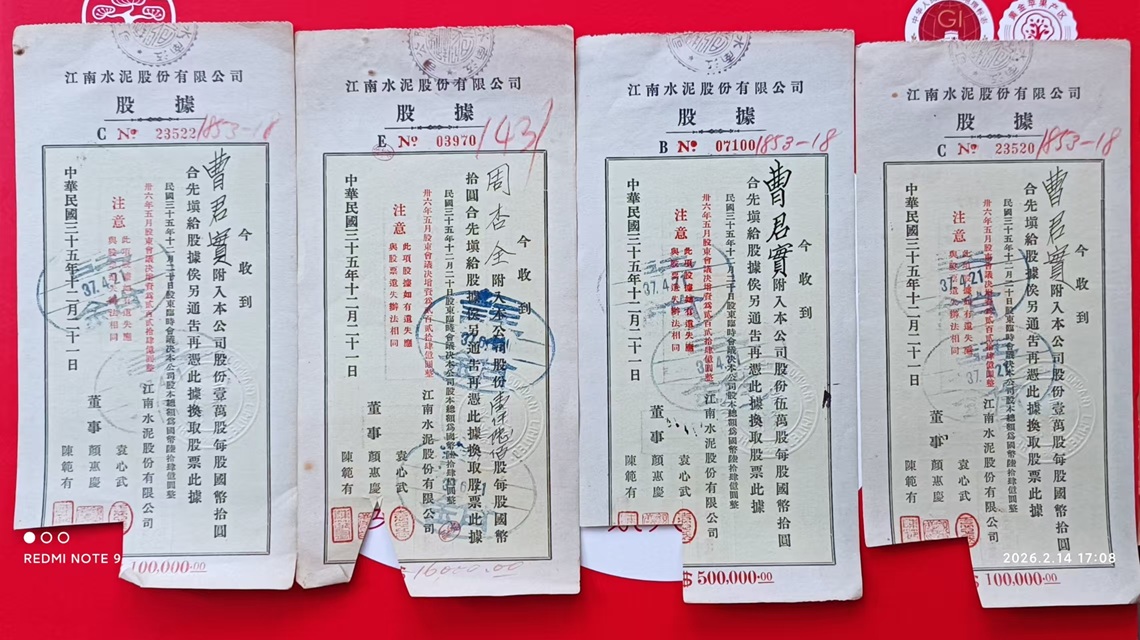 江南水泥股份有限公司
股據
C № 23522
1853-18
今收到
曹君實附入本公司股份壹萬股每股國幣拾圓
合先填給股據俟另通告再憑此據換取股票此據
民國三十五年十二月二十日股東臨時會議決本公司股本總額爲國幣陸拾肆億圓整
卅六年五月股東會議決增資爲貳百貳拾肆億圓整
江南水泥股份有限公司
注意
此項股據如有遺失應
與股票遺失辦法相同
董事
袁心武
顏惠慶
陳範有
中華民國三十五年十二月二十一日
37.4.21
100,000.00
江南水泥股份有限公司
股據
E № 03970
1431
今收到
周杏全附入本公司股份
股每股國幣
拾圓合先填給股據俟另通告再憑此據換取股票此據
民國三十五年十二月二十日股東臨時會議決本公司股本總額爲國幣陸拾肆億圓整
卅六年五月股東會議決增資爲貳百貳拾肆億圓整
江南水泥股份有限公司
注意
此項股據如有遺失應
與股票遺失辦法相同
董事
袁心武
顏惠慶
陳範有
中華民國三十五年十二月二十一日
江南水泥股份有限公司
股據
B № 07100
1853-18
今收到
曹君實附入本公司股份伍萬股每股國幣拾圓
合先填給股據俟另通告再憑此據換取股票此據
民國三十五年十二月二十日股東臨時會議決本公司股本總額爲國幣陸拾肆億圓整
卅六年五月股東會議決增資爲貳百貳拾肆億圓整
江南水泥股份有限公司
注意
此項股據如有遺失應
與股票遺失辦法相同
董事
袁心武
顏惠慶
陳範有
中華民國三十五年十二月二十一日
37.4.21
$500,000.00
江南水泥股份有限公司
股據
C № 23520
1853-18
今收到
曹君實附入本公司股份壹萬股每股國幣拾圓
合先填給股據俟另通告再憑此據換取股票此據
民國三十五年十二月二十日股東臨時會議決本公司股本總額爲國幣陸拾肆億圓整
卅六年五月股東會議決增資爲貳百貳拾肆億圓整
江南水泥股份有限公司
注意
此項股據如有遺失應
與股票遺失辦法相同
董事
袁心武
顏惠慶
陳範有
中華民國三十五年十二月二十一日
37.4.21
$100,000.00
GI
REDMI NOTE 9
2026.2.14 17:08